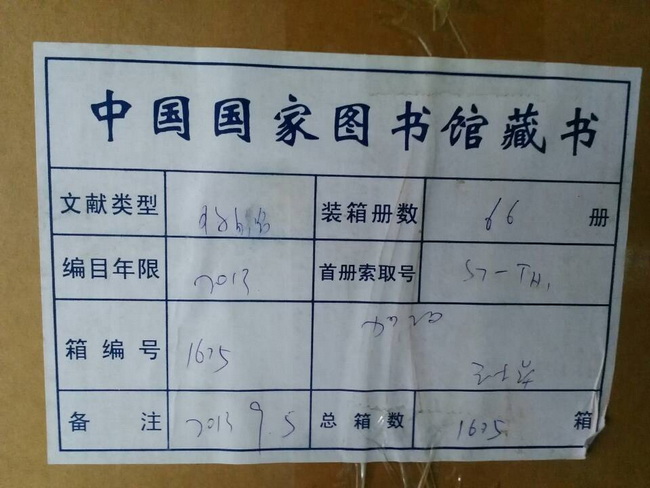 中国国家图书馆藏书
文献类型 装箱册数 66 册
编目年限 2013 首册索取号
箱编号 1675
备注 2013 9.5 总箱数 1675 箱